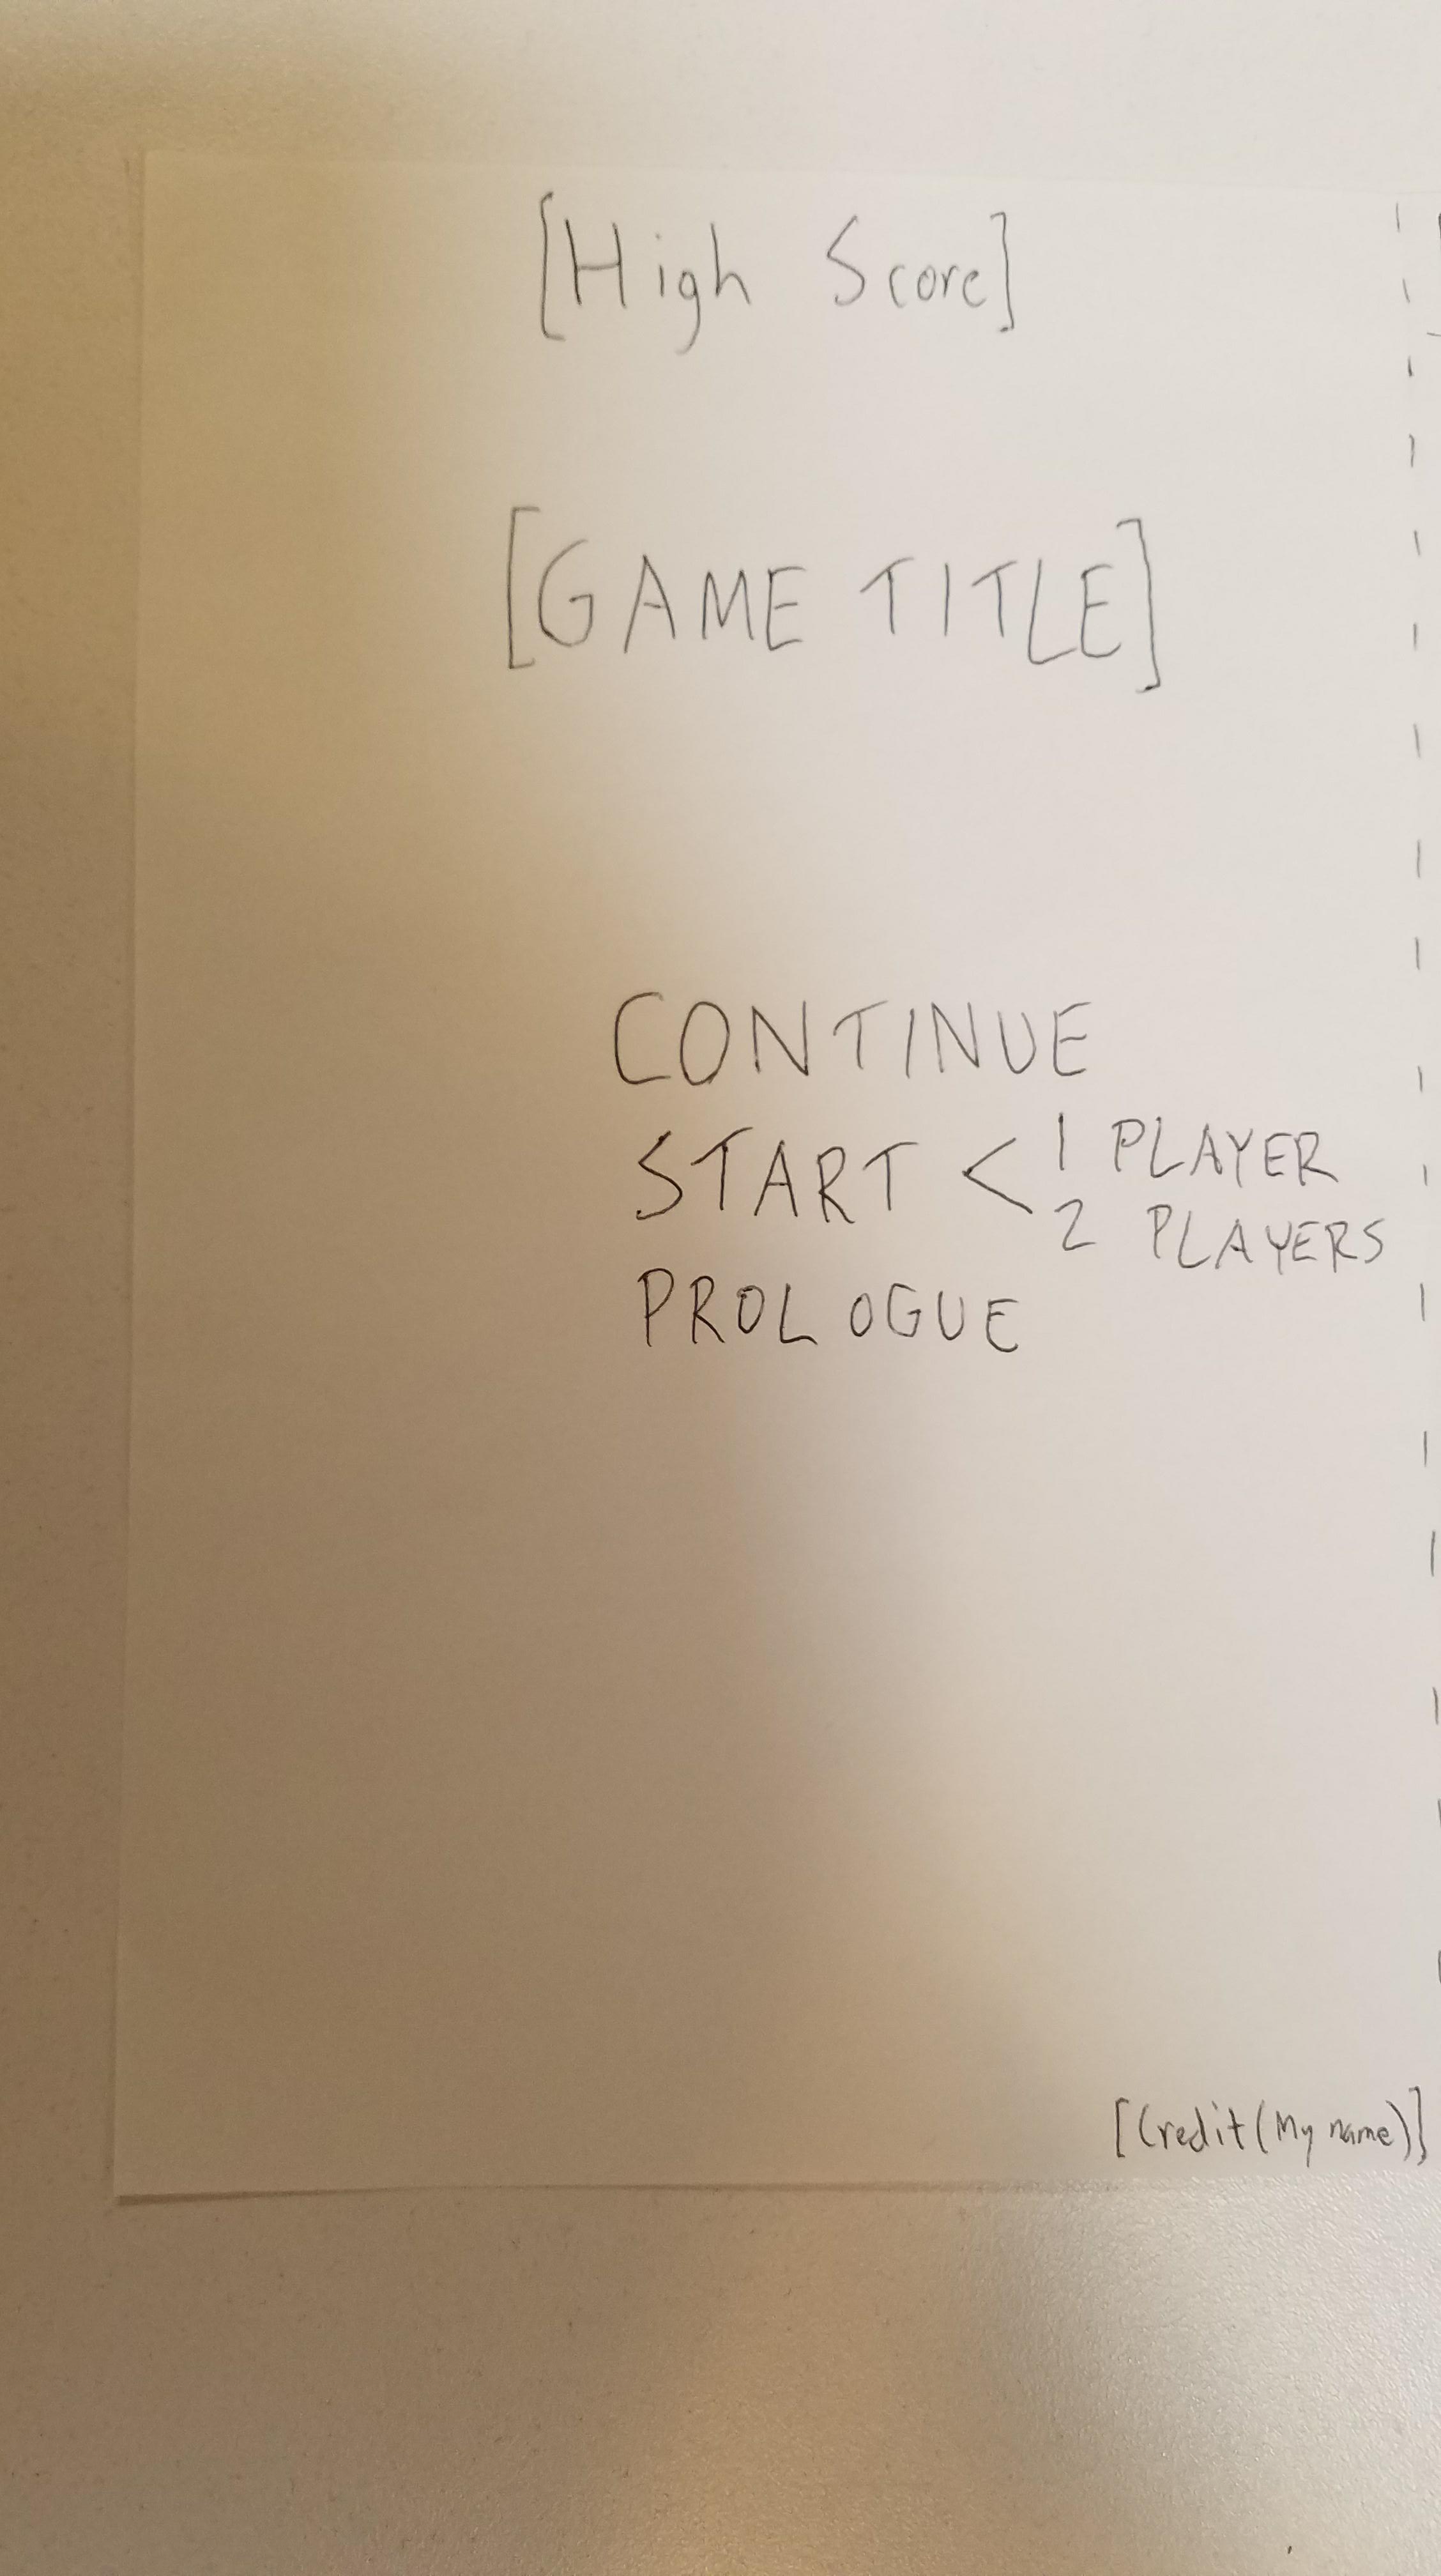 [High Score]
[GAME TITLE]
CONTINUE
START < 1 PLAYER
2 PLAYERS
PROLOGUE
[Credit (My name)]